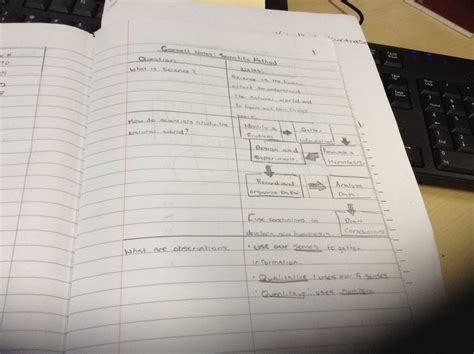 Cornell Notes: Scientific Method
Question
Notes:
What is Science?
Science is the human
effort to understand
the natural world and
to figure out how things
work.
How do scientists study the
natural world?
Identify a
Problem
Gather
Information
Design and
Experiment
Formulate a
Hypothesis
Record and
organize Data
Analyze
Data
use conclusions to
develop new hypothesis
Draw
Conclusions
What are observations
• use our senses to gather
information
• Qualitative: uses our 5 senses
uses numbers